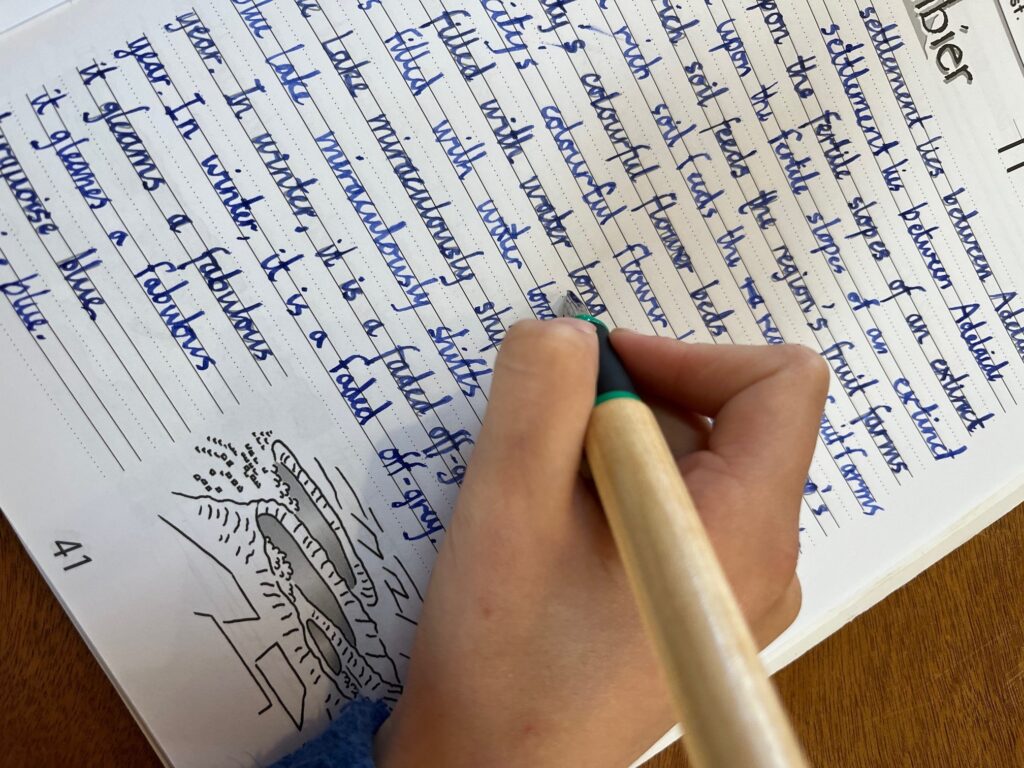 bier
settlement lies between
settlement lies between Adelaide
upon the fertile slopes of an extinct
upon the fertile slopes of an extinct
soil feeds the region's fruit farms
soil feeds the fruit farms
colourful flower beds
city's colourful flowers
filled with water
filled with water
Lake miraculously
Lake miraculously shifts
year. In winter, it is a faded off-g
year. In winter, it is a faded off-gray
it gleams a fabulous
it gleams a fabulous
blue
blue.
41